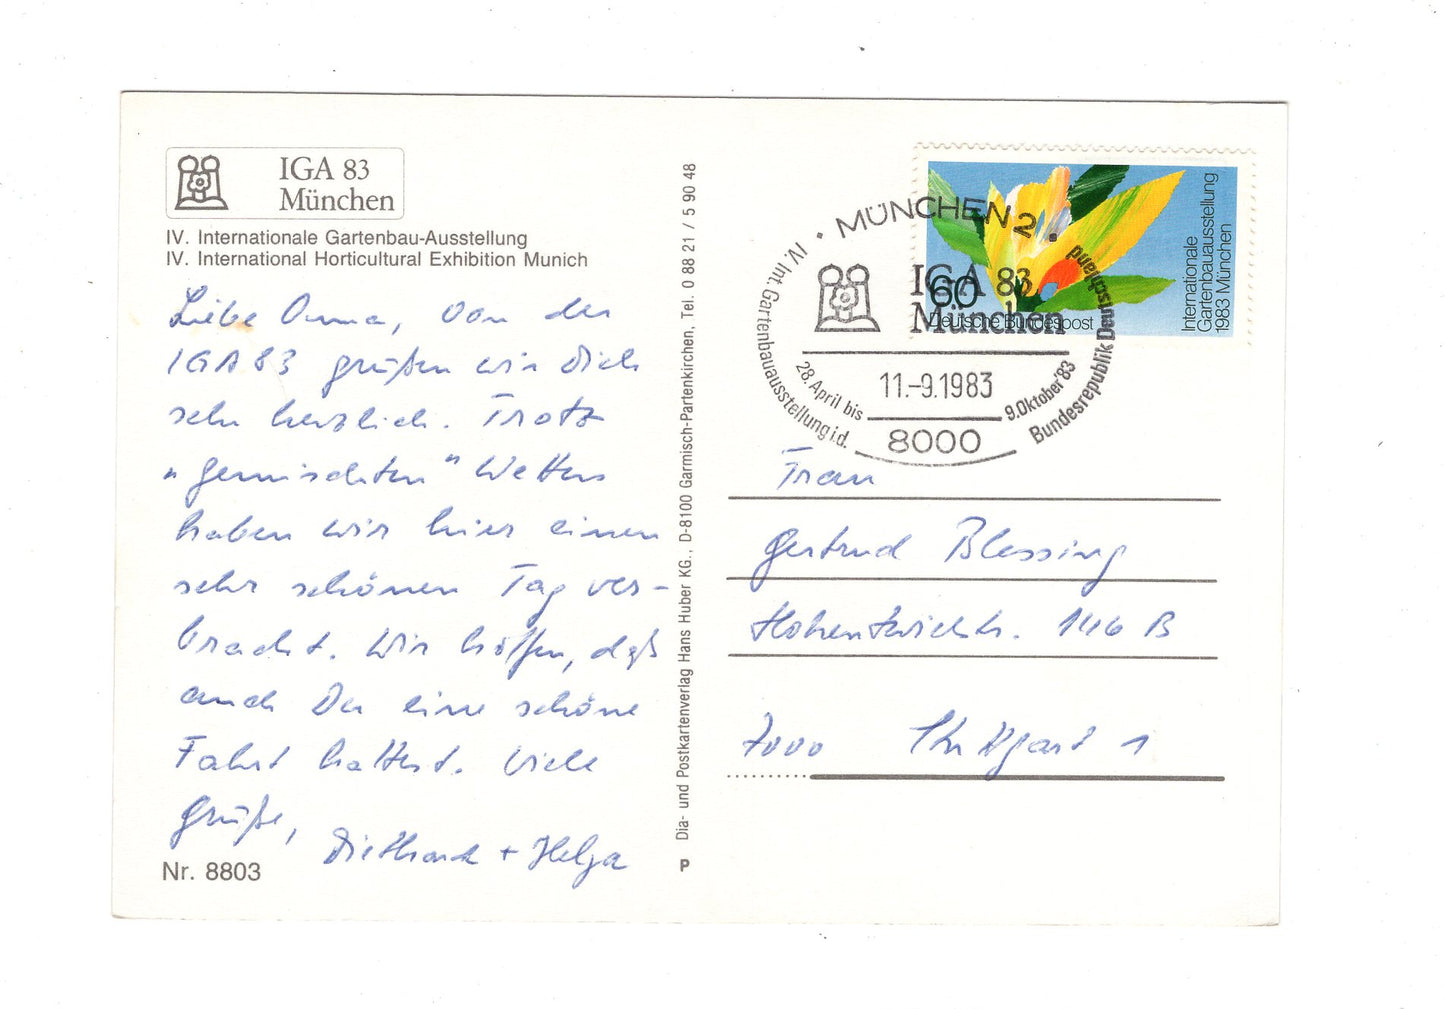 IGA 83
München
IV. Internationale Gartenbau-Ausstellung
IV. International Horticultural Exhibition Munich
Liebe Omma, von der
IGA 83 grüßen wir Dich
sehr herzlich. Trotz
„gemischten" Wetters
haben wir hier einen
sehr schönen Tag ver-
bracht. Wir hoffen, daß
auch Du eine schöne
Fahrt hattest. Viele
Grüße,
Diethard + Helga
Nr. 8803
Dia- und Postkartenverlag Hans Huber KG., D-8100 Garmisch-Partenkirchen, Tel. 0 88 21 / 5 90 48
P
60
Deutsche Bundespost
Internationale
Gartenbauausstellung
1983 München
· MÜNCHEN 2 ·
IV. Int. Gartenbauausstellung i.d.
Bundesrepublik Deutschland
IGA 83
München
28. April bis
9. Oktober '83
11.-9.1983
8000
Frau
Gertrud Blessing
Hohentwielstr. 146 B
7000 Stuttgart 1